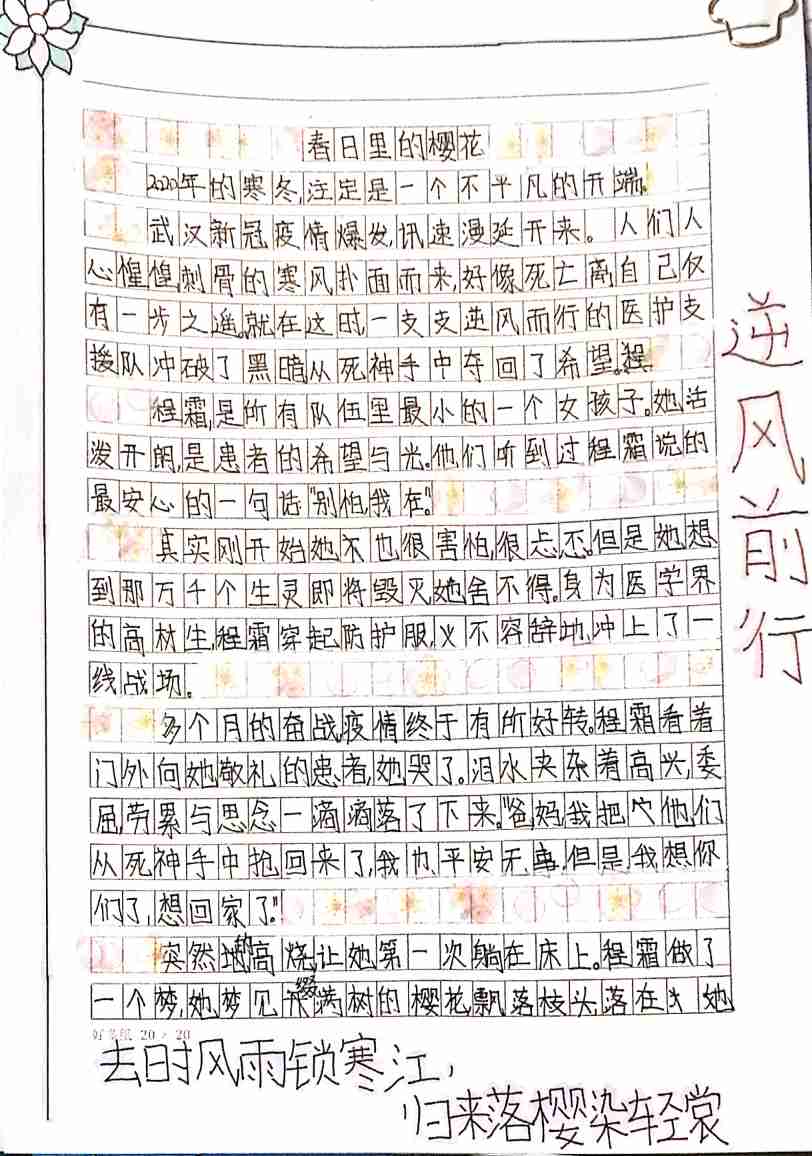 春日里的樱花
2020年的寒冬,注定是一个不平凡的开端。
武汉新冠疫情爆发,讯速漫延开来。人们人
心惶惶,刺骨的寒风扑面而来,好像死亡离自己仅
有一步之遥。就在这时,一支支逆风而行的医护支
援队冲破了黑暗,从死神手中夺回了希望。
程霜,是所有队伍里最小的一个女孩子。她活
泼开朗,是患者的希望与光。他们听到过程霜说的
最安心的一句话"别怕,我在。"
真实刚开始她不也很害怕,很忐忑。但是她想
到那万千个生灵即将毁灭,她舍不得。身为医学界
的高材生,程霜穿起防护服,义不容辞地冲上了一
线战场。
多个月的奋战,疫情终于有所好转。程霜看着
门外向她敬礼的患者,她哭了。泪水夹杂着高兴,委
屈,劳累与思念一滴滴落了下来。"爸妈,我把他们
从死神手中抢回来了,我也平安无事,但是,我想你
们了,想回家了。"
突然的高烧让她第一次躺在床上。程霜做了
一个梦,她梦见缀满树的樱花,飘落枝头,落在她
好多纸 20×20
去时风雨锁寒江,
归来落樱染轻裳
逆风前行